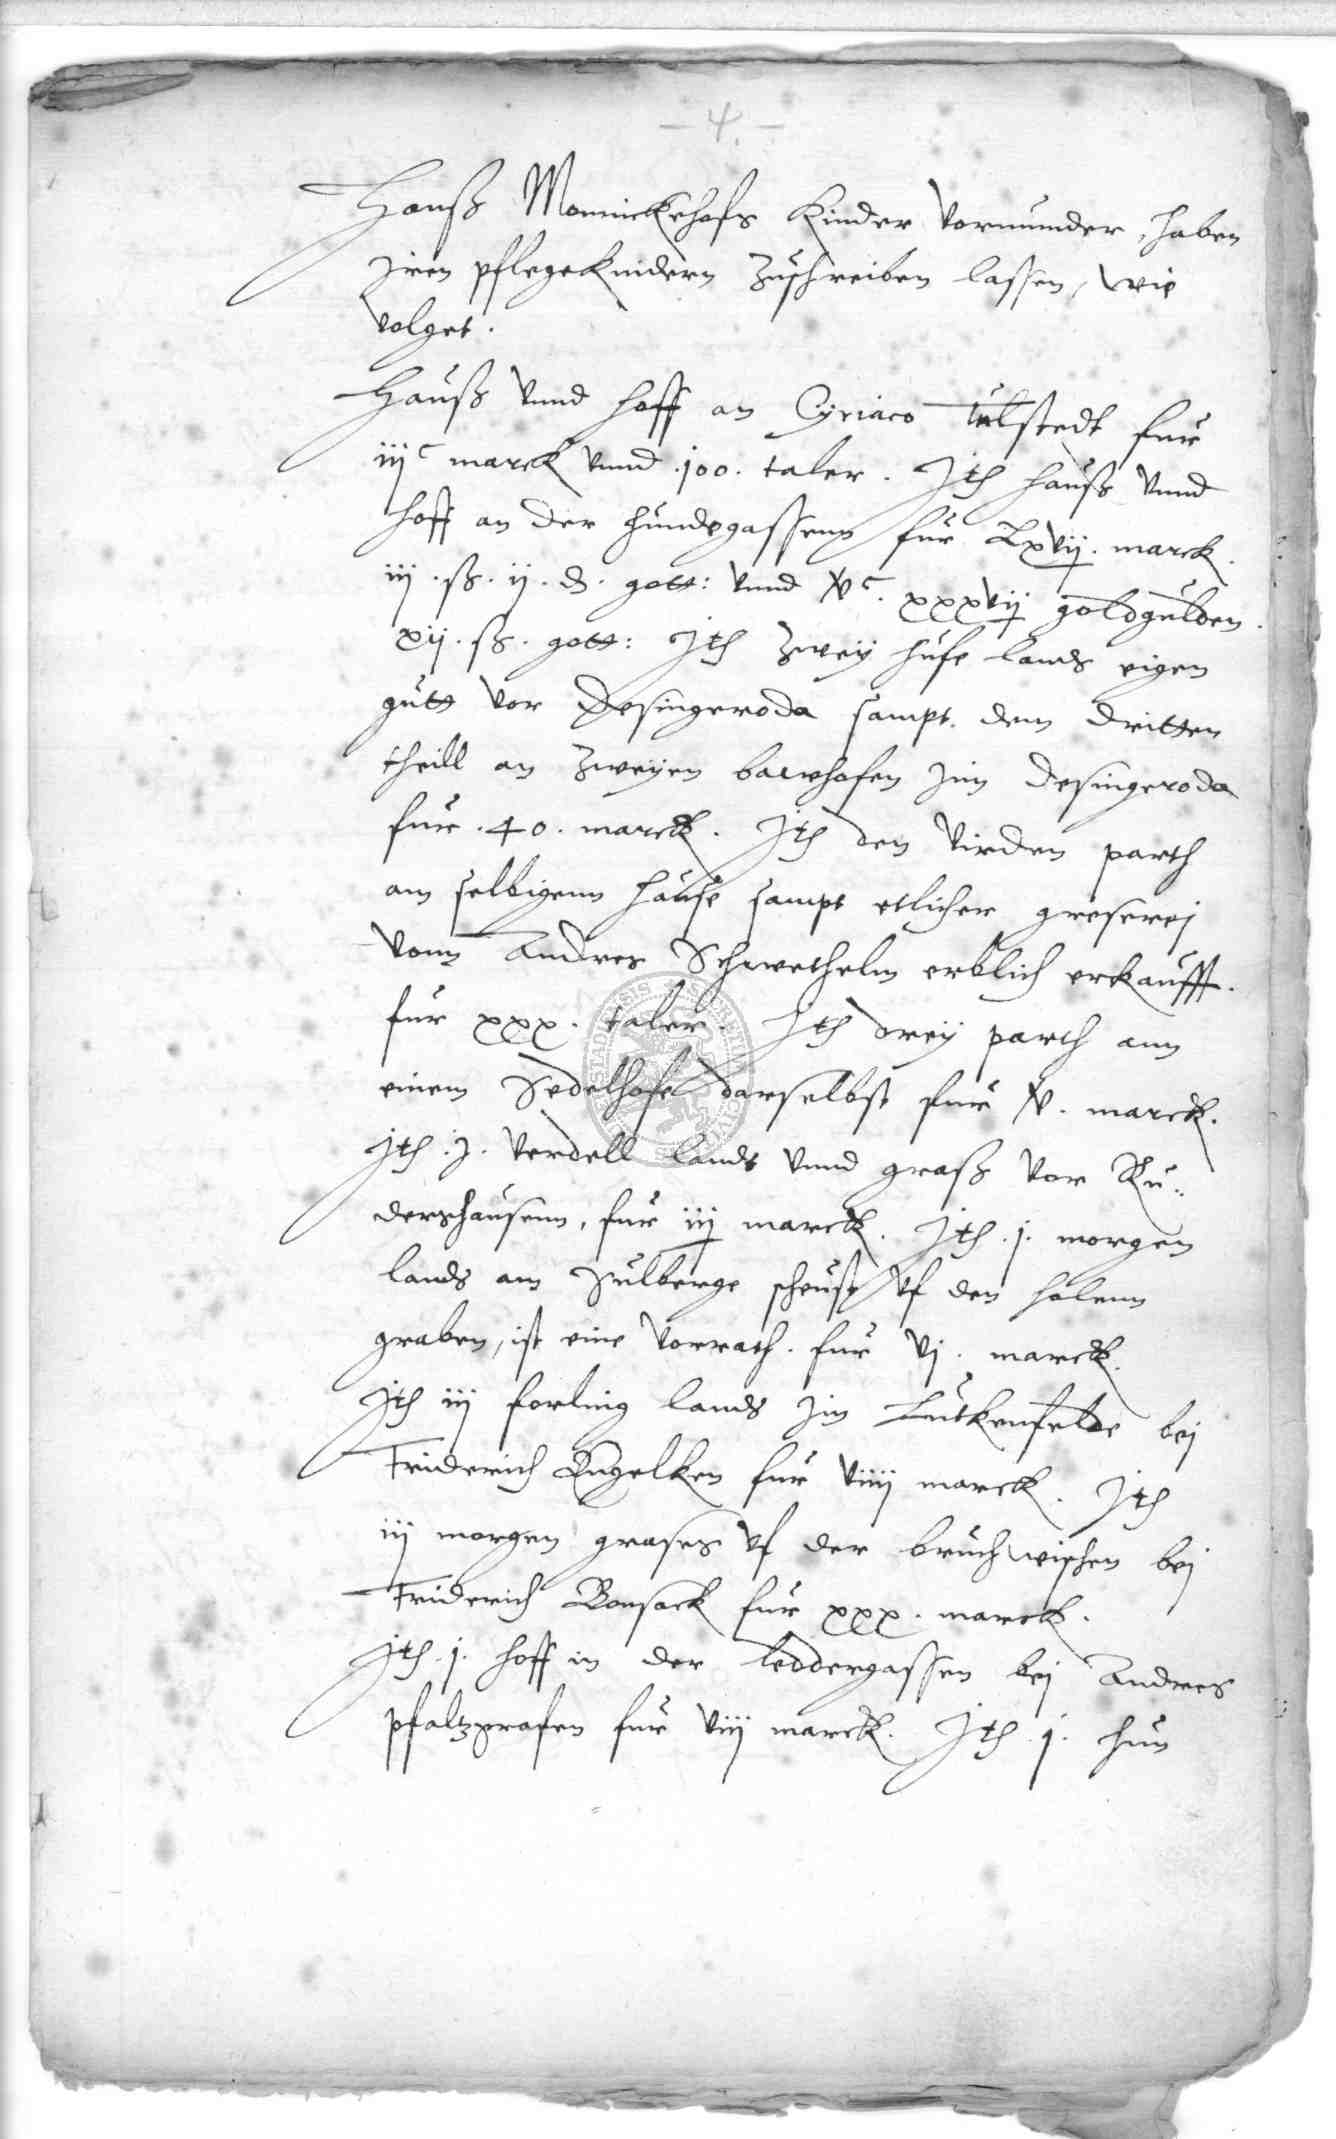 - 4. -
Hanß Monnickehofs Kinder vormunder, haben
jren pflegekindern zuschreiben lassen, wie
volget.
Hauß vnnd hoff an Cyriaco Tulstedt fur
iijc marck vnnd .100. taler. Jth hauß vnnd
hoff an der hundegassenn fur Lxvij. marck.
iij. ß. ij. d. gott: vnnd vc. xxxvij goldgulden.
xij. ß. gott: Jth zwey hufe lands eigen
gutt vor Desingeroda sampt dem dritten
theill an zweyen bawhofen jnn Desingeroda
fur .40. marck. Jth den virden parth
am selbigenn hause sampt etlicher greserej
vonn Andres Schwethelm erblich erkaufft.
fur xxx. taler. Jth drey parth ann
einem Sedelhofe darselbst fur v. marck.
Jth .j. verdell lands vnnd graß vor Ru„
dershausenn, fur iij marck. Jth .j. morgen
lands am Sulberge scheust vf den holenn
graben, ist eine vorrath. fur vj. marck.
Jth iij forling lands jm Lutkenfelde bej
Friderich Engelken fur viiij marck. Jth
iij morgen grases vf der bruchwischen bej
Friderich Bonsack fur xxx. marck.
Jth .j. hoff in der leddergassen bej Andres
pfaltzgrafen fur viij marck. Jth .j. hun